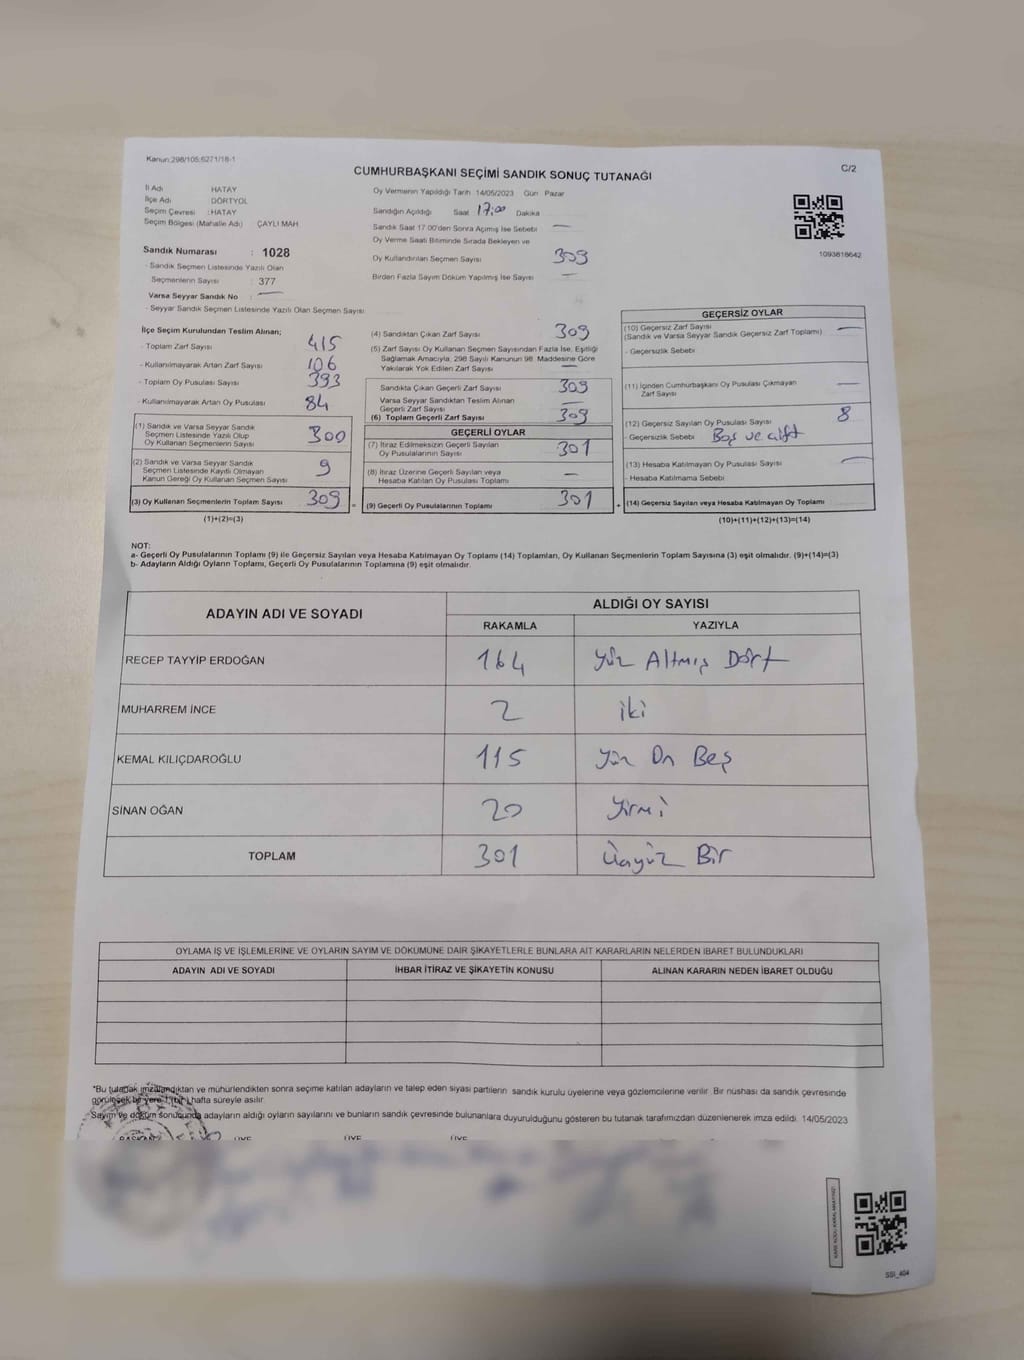 Kanun:298/105;6271/18-1
C/2
CUMHURBAŞKANI SEÇİMİ SANDIK SONUÇ TUTANAĞI
İl Adı HATAY
İlçe Adı DÖRTYOL
Seçim Çevresi :HATAY
Seçim Bölgesi (Mahalle Adı) ÇAYLI MAH
Sandık Numarası : 1028
- Sandık Seçmen Listesinde Yazılı Olan
Seçmenlerin Sayısı : 377
Varsa Seyyar Sandık No : —
- Seyyar Sandık Seçmen Listesinde Yazılı Olan Seçmen Sayısı
Oy Vermenin Yapıldığı Tarih 14/05/2023 Gün Pazar
Sandığın Açıldığı Saat 17:00 Dakika
Sandık Saat 17.00'den Sonra Açımış İse Sebebi —
Oy Verme Saati Bitiminde Sırada Bekleyen ve
Oy Kullandırılan Seçmen Sayısı 309
Birden Fazla Sayım Döküm Yapılmış İse Sayısı —
1093818642
İlçe Seçim Kurulundan Teslim Alınan;
- Toplam Zarf Sayısı 415
- Kullanılmayarak Artan Zarf Sayısı 106
- Toplam Oy Pusulası Sayısı 393
- Kullanılmayarak Artan Oy Pusulası 84
(1) Sandık ve Varsa Seyyar Sandık
Seçmen Listesinde Yazılı Olup
Oy Kullanan Seçmenlerin Sayısı 300
(2) Sandık ve Varsa Seyyar Sandık
Seçmen Listesinde Kayıtlı Olmayan
Kanun Gereği Oy Kullanan Seçmen Sayısı 9
(3) Oy Kullanan Seçmenlerin Toplam Sayısı 309 =
(1)+(2)=(3)
(4) Sandıktan Çıkan Zarf Sayısı 309
(5) Zarf Sayısı Oy Kullanan Seçmen Sayısından Fazla İse, Eşitliği
Sağlamak Amacıyla, 298 Sayılı Kanunun 98. Maddesine Göre
Yakılarak Yok Edilen Zarf Sayısı —
Sandıkta Çıkan Geçerli Zarf Sayısı 309
Varsa Seyyar Sandıktan Teslim Alınan
Geçerli Zarf Sayısı —
(6) Toplam Geçerli Zarf Sayısı 309
GEÇERLİ OYLAR
(7) İtiraz Edilmeksizin Geçerli Sayılan
Oy Pusulalarının Sayısı 301
(8) İtiraz Üzerine Geçerli Sayılan veya
Hesaba Katılan Oy Pusulası Toplamı —
(9) Geçerli Oy Pusulalarının Toplamı 301 +
GEÇERSİZ OYLAR
(10) Geçersiz Zarf Sayısı —
(Sandık ve Varsa Seyyar Sandık Geçersiz Zarf Toplamı)
- Geçersizlik Sebebi
(11) İçinden Cumhurbaşkanı Oy Pusulası Çıkmayan
Zarf Sayısı —
(12) Geçersiz Sayılan Oy Pusulası Sayısı 8
- Geçersizlik Sebebi Boş ve çift
(13) Hesaba Katılmayan Oy Pusulası Sayısı —
- Hesaba Katılmama Sebebi
(14) Geçersiz Sayılan veya Hesaba Katılmayan Oy Toplamı
(10)+(11)+(12)+(13)=(14)
NOT:
a- Geçerli Oy Pusulalarının Toplamı (9) ile Geçersiz Sayılan veya Hesaba Katılmayan Oy Toplamı (14) Toplamları, Oy Kullanan Seçmenlerin Toplam Sayısına (3) eşit olmalıdır. (9)+(14)=(3)
b- Adayların Aldığı Oyların Toplamı, Geçerli Oy Pusulalarının Toplamına (9) eşit olmalıdır.
ADAYIN ADI VE SOYADI
ALDIĞI OY SAYISI
RAKAMLA YAZIYLA
RECEP TAYYİP ERDOĞAN 164 Yüz Altmış Dört
MUHARREM İNCE 2 iki
KEMAL KILIÇDAROĞLU 115 Yüz On Beş
SİNAN OĞAN 20 Yirmi
TOPLAM 301 Üçyüz Bir
OYLAMA İŞ VE İŞLEMLERİNE VE OYLARIN SAYIM VE DÖKÜMÜNE DAİR ŞİKAYETLERLE BUNLARA AİT KARARLARIN NELERDEN İBARET BULUNDUKLARI
ADAYIN ADI VE SOYADI İHBAR İTİRAZ VE ŞİKAYETİN KONUSU ALINAN KARARIN NEDEN İBARET OLDUĞU
*Bu tutanak imzalandıktan ve mühürlendikten sonra seçime katılan adayların ve talep eden siyasi partilerin sandık kurulu üyelerine veya gözlemcilerine verilir. Bir nüshası da sandık çevresinde
görülecek bir yere 1 (bir) hafta süreyle asılır.
Sayım ve döküm sonucunda adayların aldığı oyların sayılarını ve bunların sandık çevresinde bulunanlara duyurulduğunu gösteren bu tutanak tarafımızdan düzenlenerek imza edildi. 14/05/2023
BAŞKAN ÜYE ÜYE ÜYE
SSİ_404